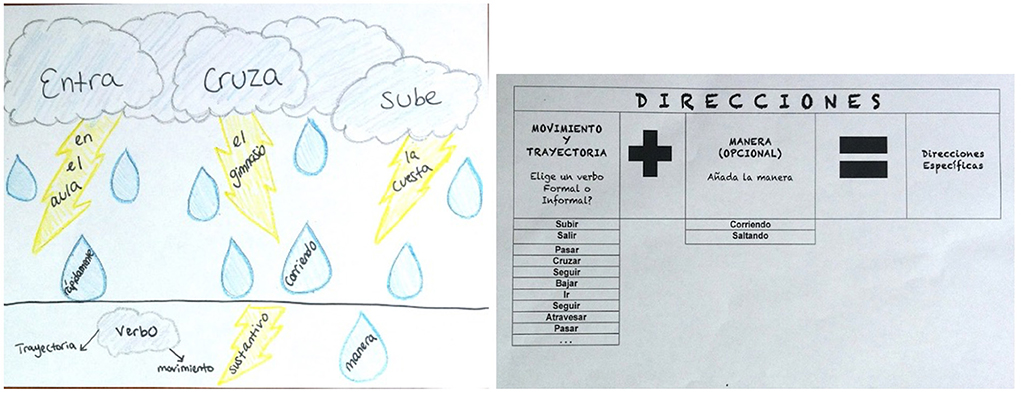 Entra
Cruza
Sube
en
el
aula
el
gimnasio
la
cuesta
rápidamente
corriendo
verbo
Trayectoria
movimiento
sustantivo
manera
DIRECCIONES
MOVIMIENTO
Y
TRAYECTORIA
Elige un verbo
Formal o
Informal?
+
MANERA
(OPCIONAL)
Añada la manera
=
Direcciones
Específicas
Subir
Salir
Pasar
Cruzar
Seguir
Bajar
Ir
Seguir
Atravesar
Pasar
...
Corriendo
Saltando